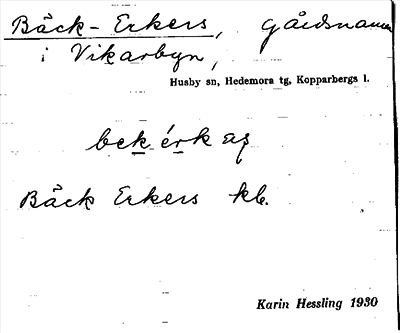 Bäck-Erkers, gårdsnamn
i Vikarbyn,
Husby sn, Hedemora tg, Kopparbergs l.
bek érk as
Bäck Erkers kb.
Karin Hessling 1930